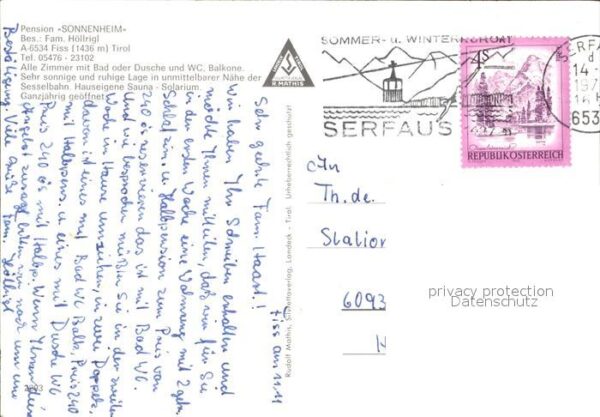 Pension «SONNENHEIM»
Bes.: Fam. Höllrigl
A-6534 Fiss (1436 m) Tirol
Tel. 05476 - 23102
Alle Zimmer mit Bad oder Dusche und WC, Balkone.
Sehr sonnige und ruhige Lage in unmittelbarer Nähe der
Sesselbahn. Hauseigene Sauna - Solarium.
Ganzjährig geöffnet
R. MATHIS
SOMMER- u. WINTERKURORT
SERFAUS
4S
REPUBLIK ÖSTERREICH
SERFAUS
14.
197
653
Rudolf Mathis, Silvrettaverlag, Landeck - Tirol Urheberrechtlich geschützt
Fiss am 11.11
Sehr geehrte Fam. Haast!
Wir haben Ihr Schreiben erhalten und
möchte Ihnen mitteilen, daß wir für Sie
in der ersten Woche eine Wohnung mit 2 getr.
Schlafzi. u. Halbpension zum Preis von
240 ö.S reservieren das ist mit Bad WC.
Und wie besprochen müßten Sie in der zweiten
Woche im Hause umziehen, in zwei Doppelz.
davon ist eines mit Bad WC Balk. Preis 240
mit Halbpens. u. eines mit Dusche WC
Preis 240 öS mit Halbp. Wenn Ihnen dies
Angebot zusagt bitten wir noch um eine
Bestätigung. Viele Grüße Fam. Höllrigl
An
Th. de.
6093
privacy protection
Datenschutz